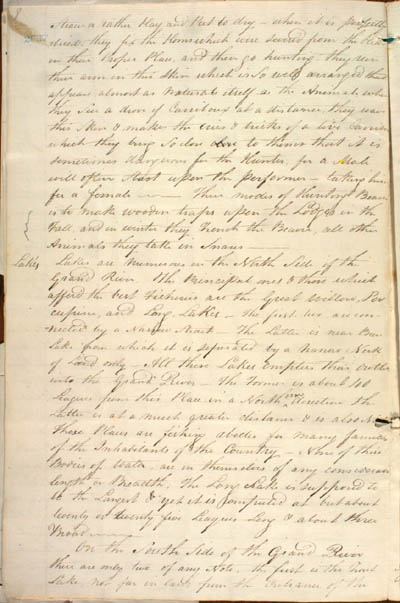 a rather Hay and Put to dry – when it is perfectly
they fix the Horns which were from the
in their Proper Place, and then go hunting. they
their arm in this Skin which is so well arranged that
appear almost as Natural itself as the Animal when
they See a drove of Carribous at a distance they
this Skin & make the cries & tricks of a live Carribou
which they bring So close to them that it is
sometimes dangerous for the Hunter, for a Male
will often Start upon the performer – taking him
for a female ——— Their modes of Hunting Beaver
is to make wooden Traps upon the Lodges in the
Fall, and in winter they trench the Beaver, all other
Animals they take in Snares ———
Lakes
Lakes are Numerous in the North Side of the
Grand River. The Principal ones & those which
afford the best Fisheries are the Great Willow, Por
cupine, and Long Lakes – The first two are con-
nected by a Narrow Strait – The Latter is near
Lake from which it is seperated by a Narrow Neck
of Land only – All these Lakes Empties their
into the Grand River – The Former is about 100
Leagues from this Place in a North Direction the
Latter is at a much greater distance & is also
These Places are fishing for many families
of the Inhabitants of the Country – None of these
Bodies of Water are in themselves of any considerable
length or Breadth. The Long Lake is supposed to
be the Largest & yet it is computed at but about
twenty or twenty five Leagues Long & about three
Broad ———
On the South Side of the Grand River
there are only two of any Note. the first is the
Lake not far in land from the Entrance of the